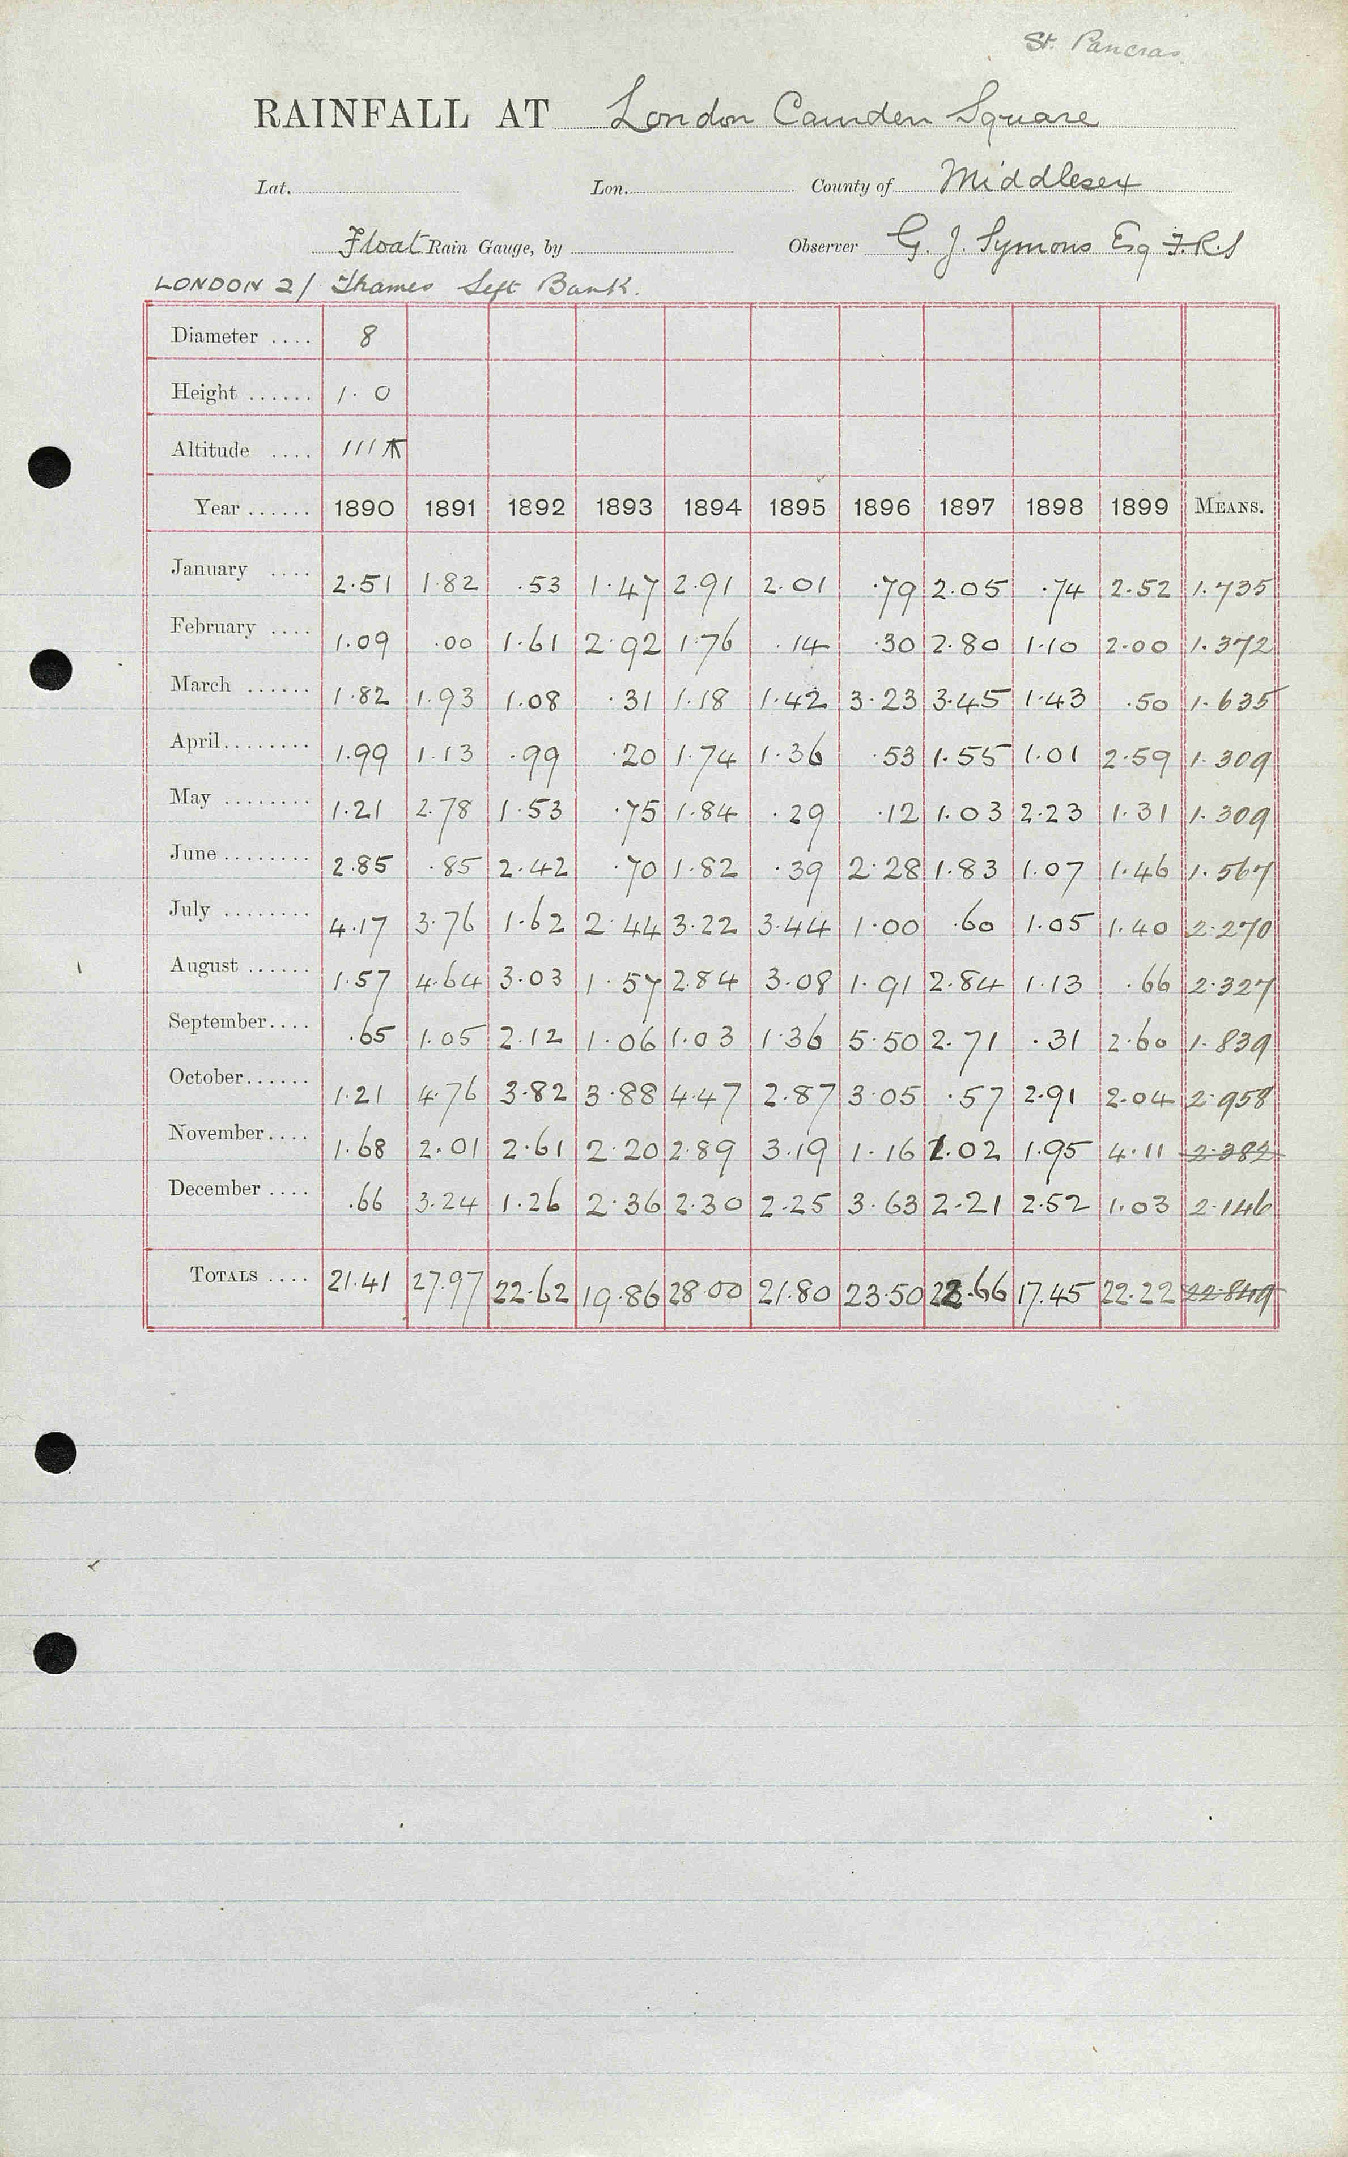 St. Pancras
RAINFALL AT London Camden Square
Lat. Lon. County of Middlesex
Float Rain Gauge, by Observer G. J. Symons Esq F.R.S
LONDON 2/ Thames Left Bank.
Diameter .... 8
Height ...... 1. 0
Altitude .... 111
Year ...... 1890 1891 1892 1893 1894 1895 1896 1897 1898 1899 MEANS.
January .... 2.51 1.82 .53 1.47 2.91 2.01 .79 2.05 .74 2.52 1.735
February .... 1.09 .00 1.61 2.92 1.76 .14 .30 2.80 1.10 2.00 1.372
March ...... 1.82 1.93 1.08 .31 1.18 1.42 3.23 3.45 1.43 .50 1.635
April........ 1.99 1.13 .99 .20 1.74 1.36 .53 1.55 1.01 2.59 1.309
May ........ 1.21 2.78 1.53 .75 1.84 .29 .12 1.03 2.23 1.31 1.309
June ........ 2.85 .85 2.42 .70 1.82 .39 2.28 1.83 1.07 1.46 1.567
July ........ 4.17 3.76 1.62 2.44 3.22 3.44 1.00 .60 1.05 1.40 2.270
August ...... 1.57 4.64 3.03 1.57 2.84 3.08 1.91 2.84 1.13 .66 2.327
September.... .65 1.05 2.12 1.06 1.03 1.36 5.50 2.71 .31 2.60 1.839
October...... 1.21 4.76 3.82 3.88 4.47 2.87 3.05 .57 2.91 2.04 2.958
November.... 1.68 2.01 2.61 2.20 2.89 3.19 1.16 1.02 1.95 4.11 2.382
December .... .66 3.24 1.26 2.36 2.30 2.25 3.63 2.21 2.52 1.03 2.146
TOTALS .... 21.41 27.97 22.62 19.86 28.00 21.80 23.50 22.66 17.45 22.22 22.849